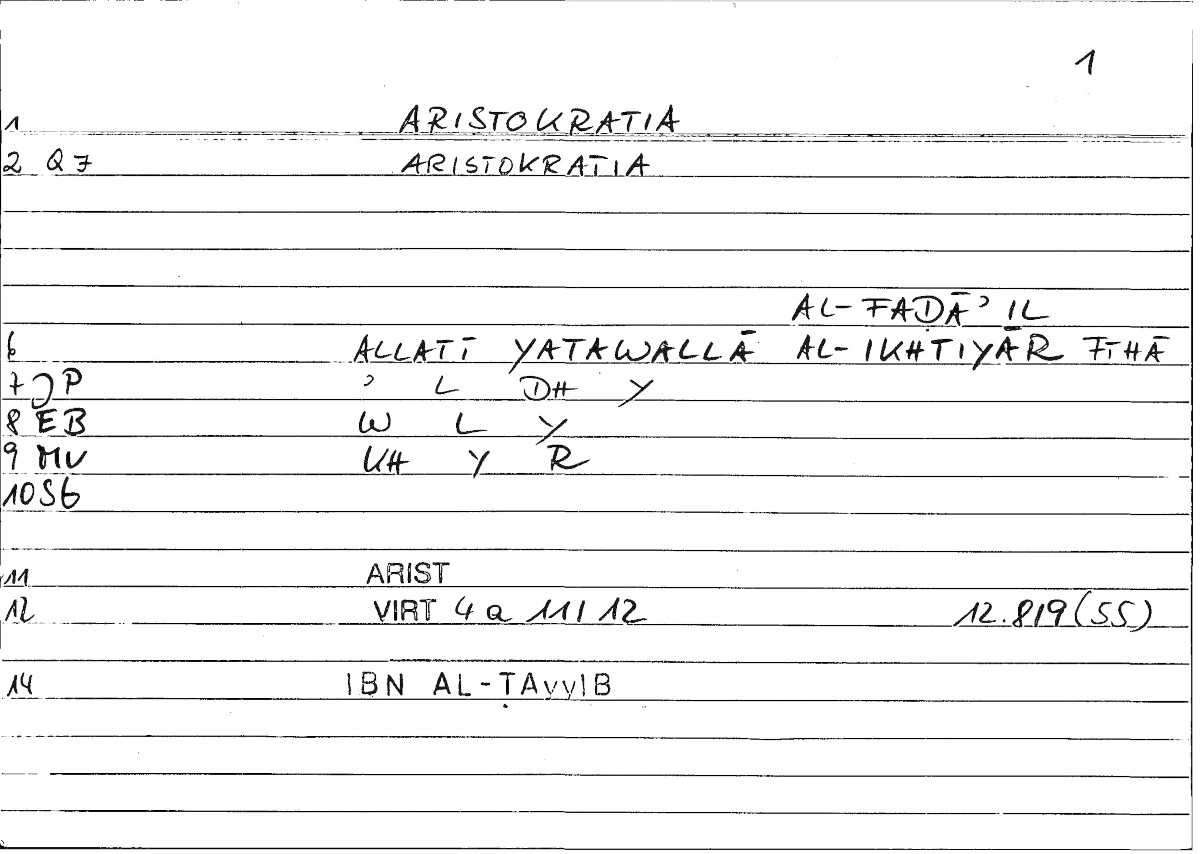 1
1 ARISTOKRATIA
2 Q7 ARISTOKRATIA
AL-FAḌĀʾIL
6 ALLATĪ YATAWALLĀ AL-IKHTIYĀR FĪHĀ
7 JP ʾ L DH Y
8 EB W L Y
9 MV KH Y R
10 S6
11 ARIST
12 VIRT 4 a 11/12 12.819(SS)
14 IBN AL-ṬAyyIB